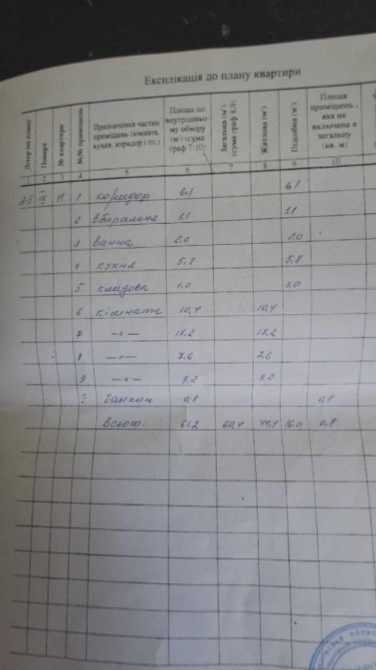 Експлікація до плану квартири
Літер по плану
Поверх
№ квартири
№№ приміщень
Призначення частин приміщень (кімната, кухня, коридор і т.п.)
Площа по внутрішньому обміру (м²) (сума граф 7·10)
Загальна (м²) (сума граф 8,9)
Житлова (м²)
Підсобна (м²)
Площа приміщень, яка не включена в загальну (кв. м)
4 5 6 7 8 9 10
1 коридор 6,1 6,1
2 вбиральня
3 ванна 2.0 2.0
4 кухня 5,8 5,8
5 кладова 1.0 1.0
6 кімната 10,4 10,4
7 —»— 17,2 17,2
8 —»— 7.6 7.6
9 —»— 9.2 9.2
балкон 0,8 0,8
Всього: 61,2 60,4 44,4 16,0 0,8